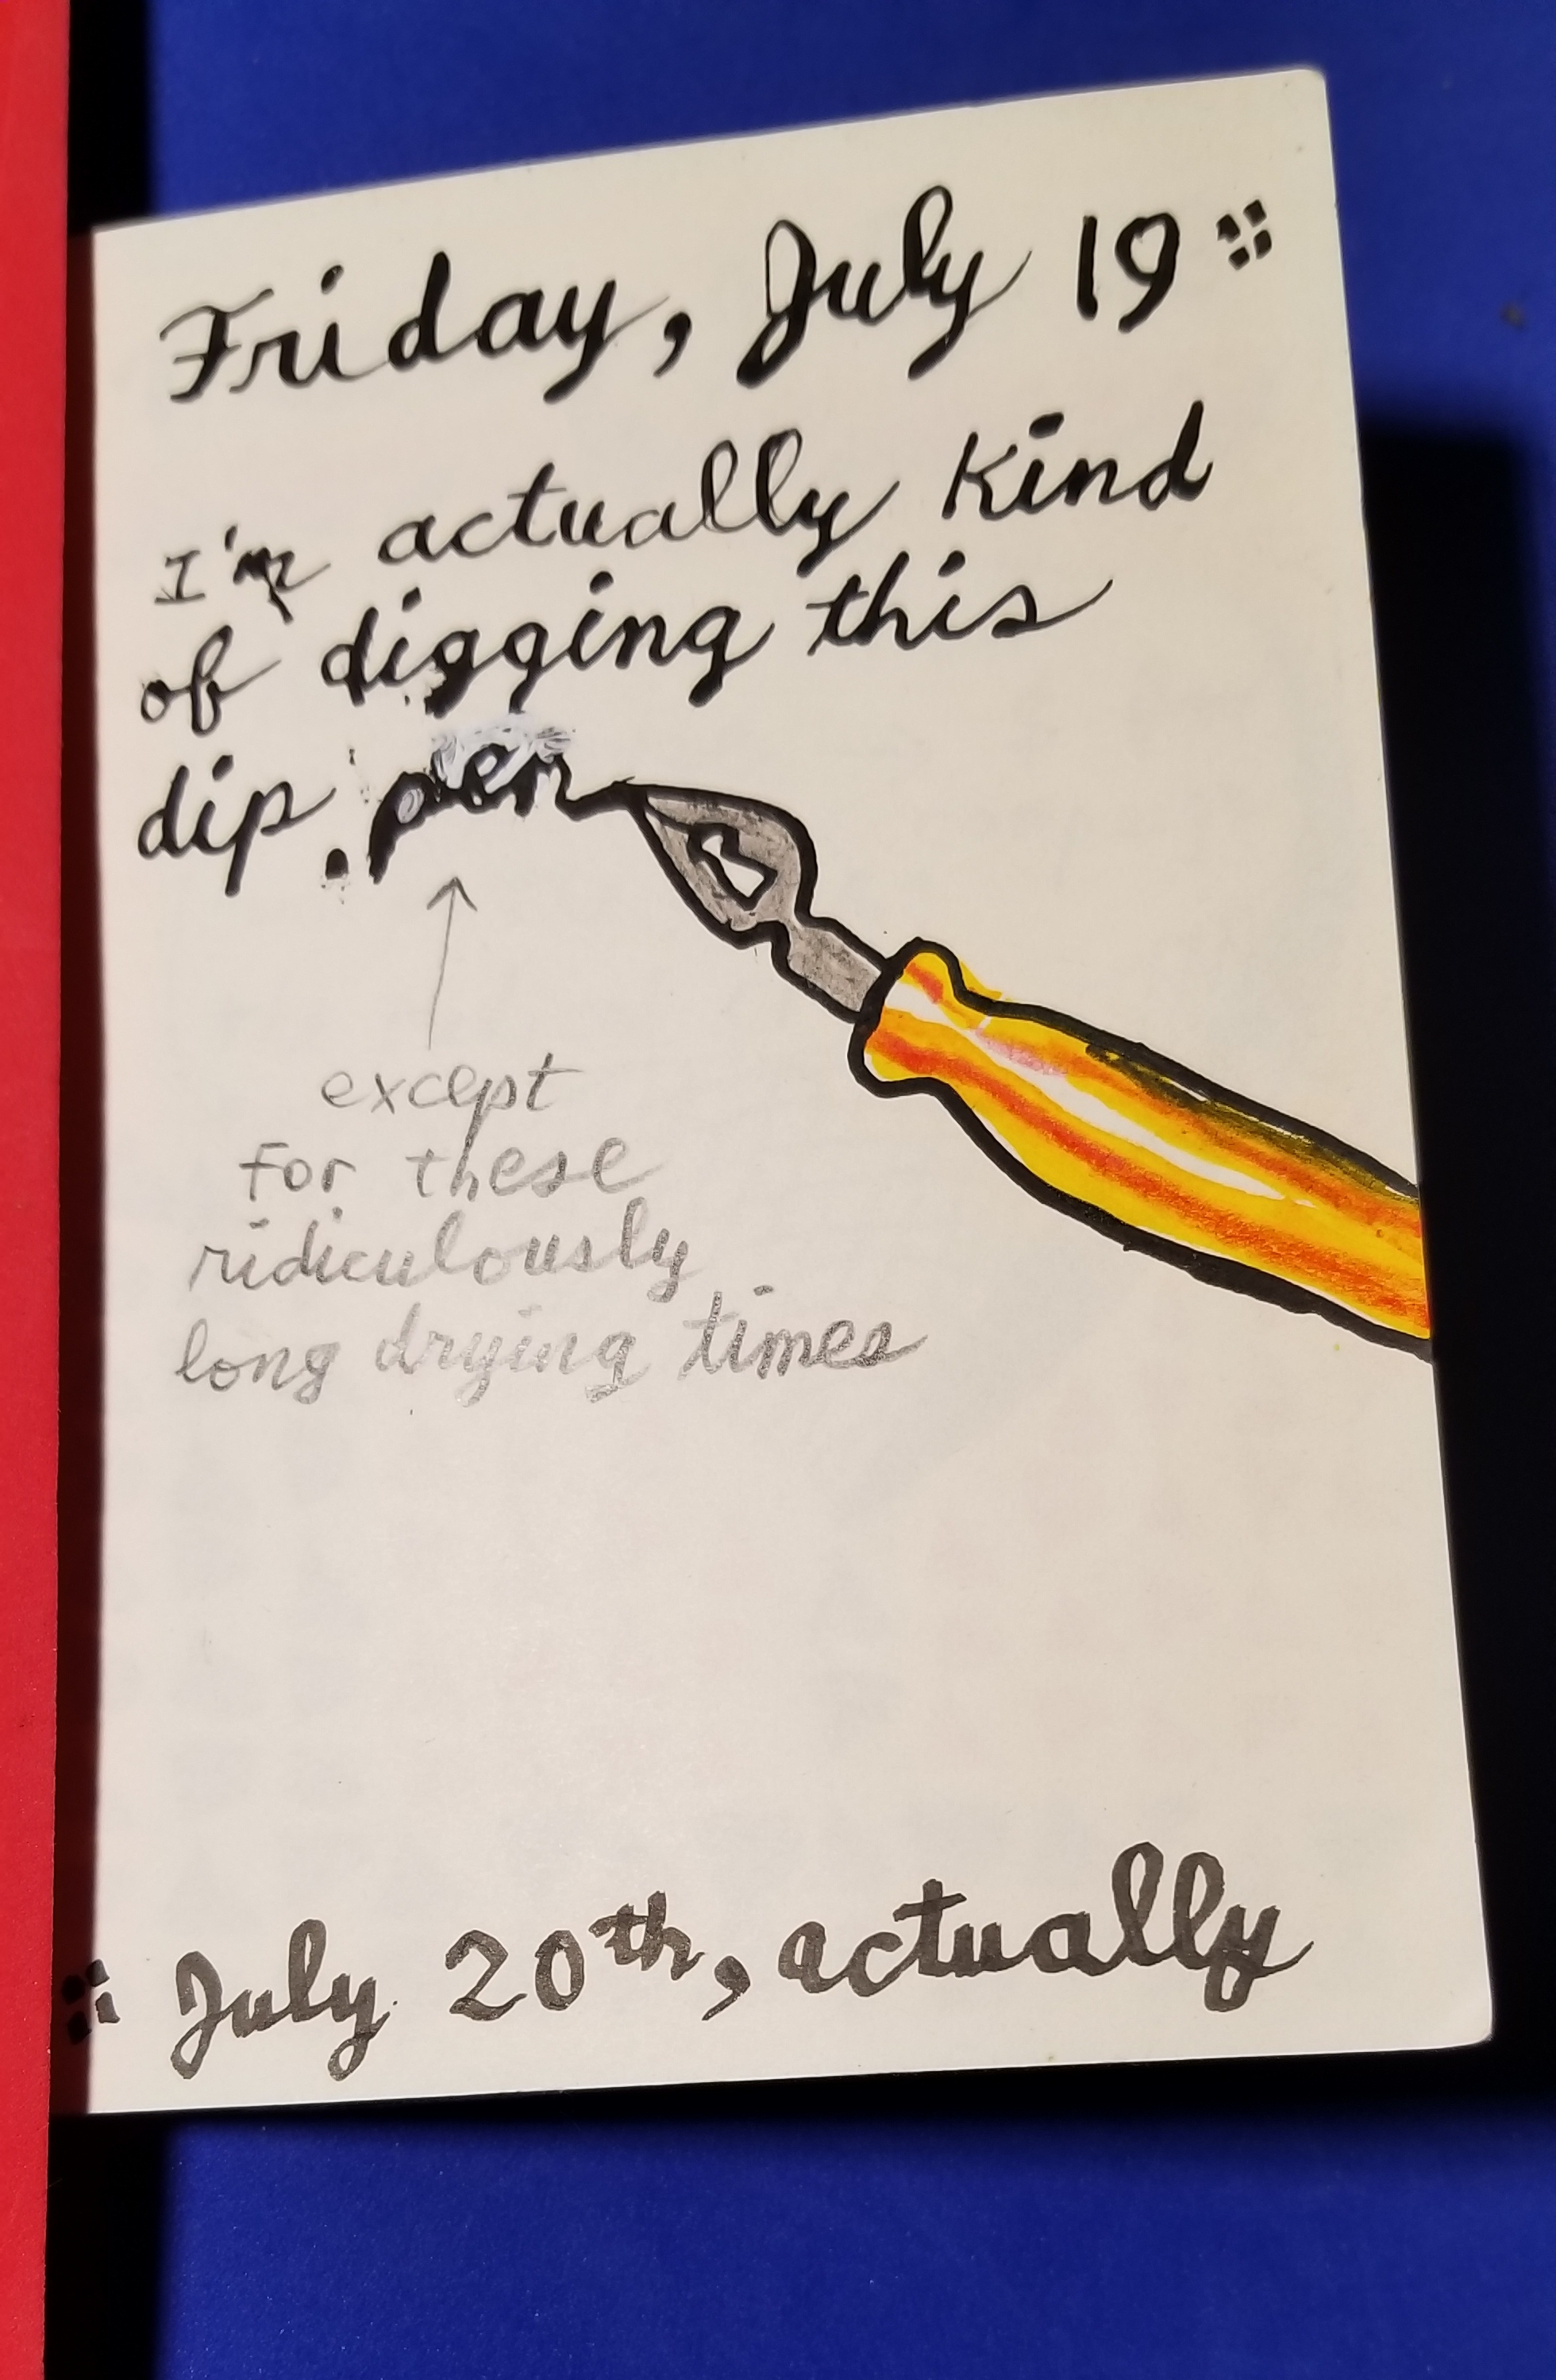 Friday, July 19 ⁘
I'm actually kind
of digging this
dip pen
except
for these
ridiculously
long drying times
⁘ July 20th, actually